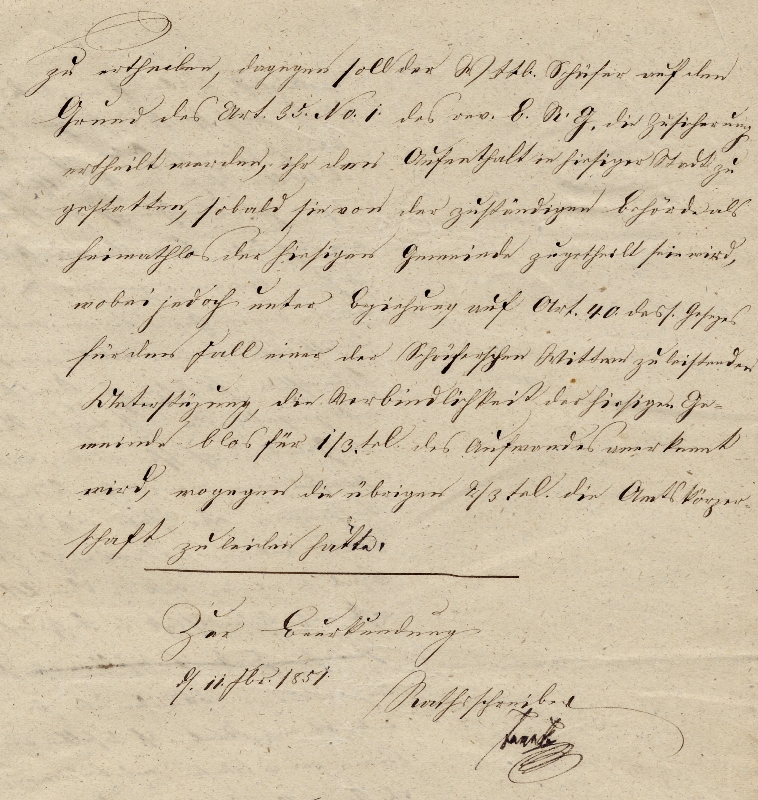 zu ertheilen, dagegen soll der Wttb. Schäfer auf den
Grund des Art. 35. No. 1. des rev. B. R. G. die Zusicherung
ertheilt werden, ihr den Aufenthalt in hiesiger Stadt zu
gestatten, sobald sie von der zuständigen Behörde als
heimathlos der hiesigen Gemeinde zugetheilt sein wird,
wobei jedoch unter Beziehung auf Art. 40. des s. Gesezes
für den Fall einer der Schäferschen Wittwe zu leistenden
Unterstüzung, die Verbindlichkeit der hiesigen Ge-
meinde blos für 1/3.tel. des Aufwandes anerkannt
wird, wogegen die übrigen 2/3 tel. die Amtskörper-
schaft zu leiden hätte.
Zur Beurkundung
d. 11. Fbr. 1851.
Rathsschreiber